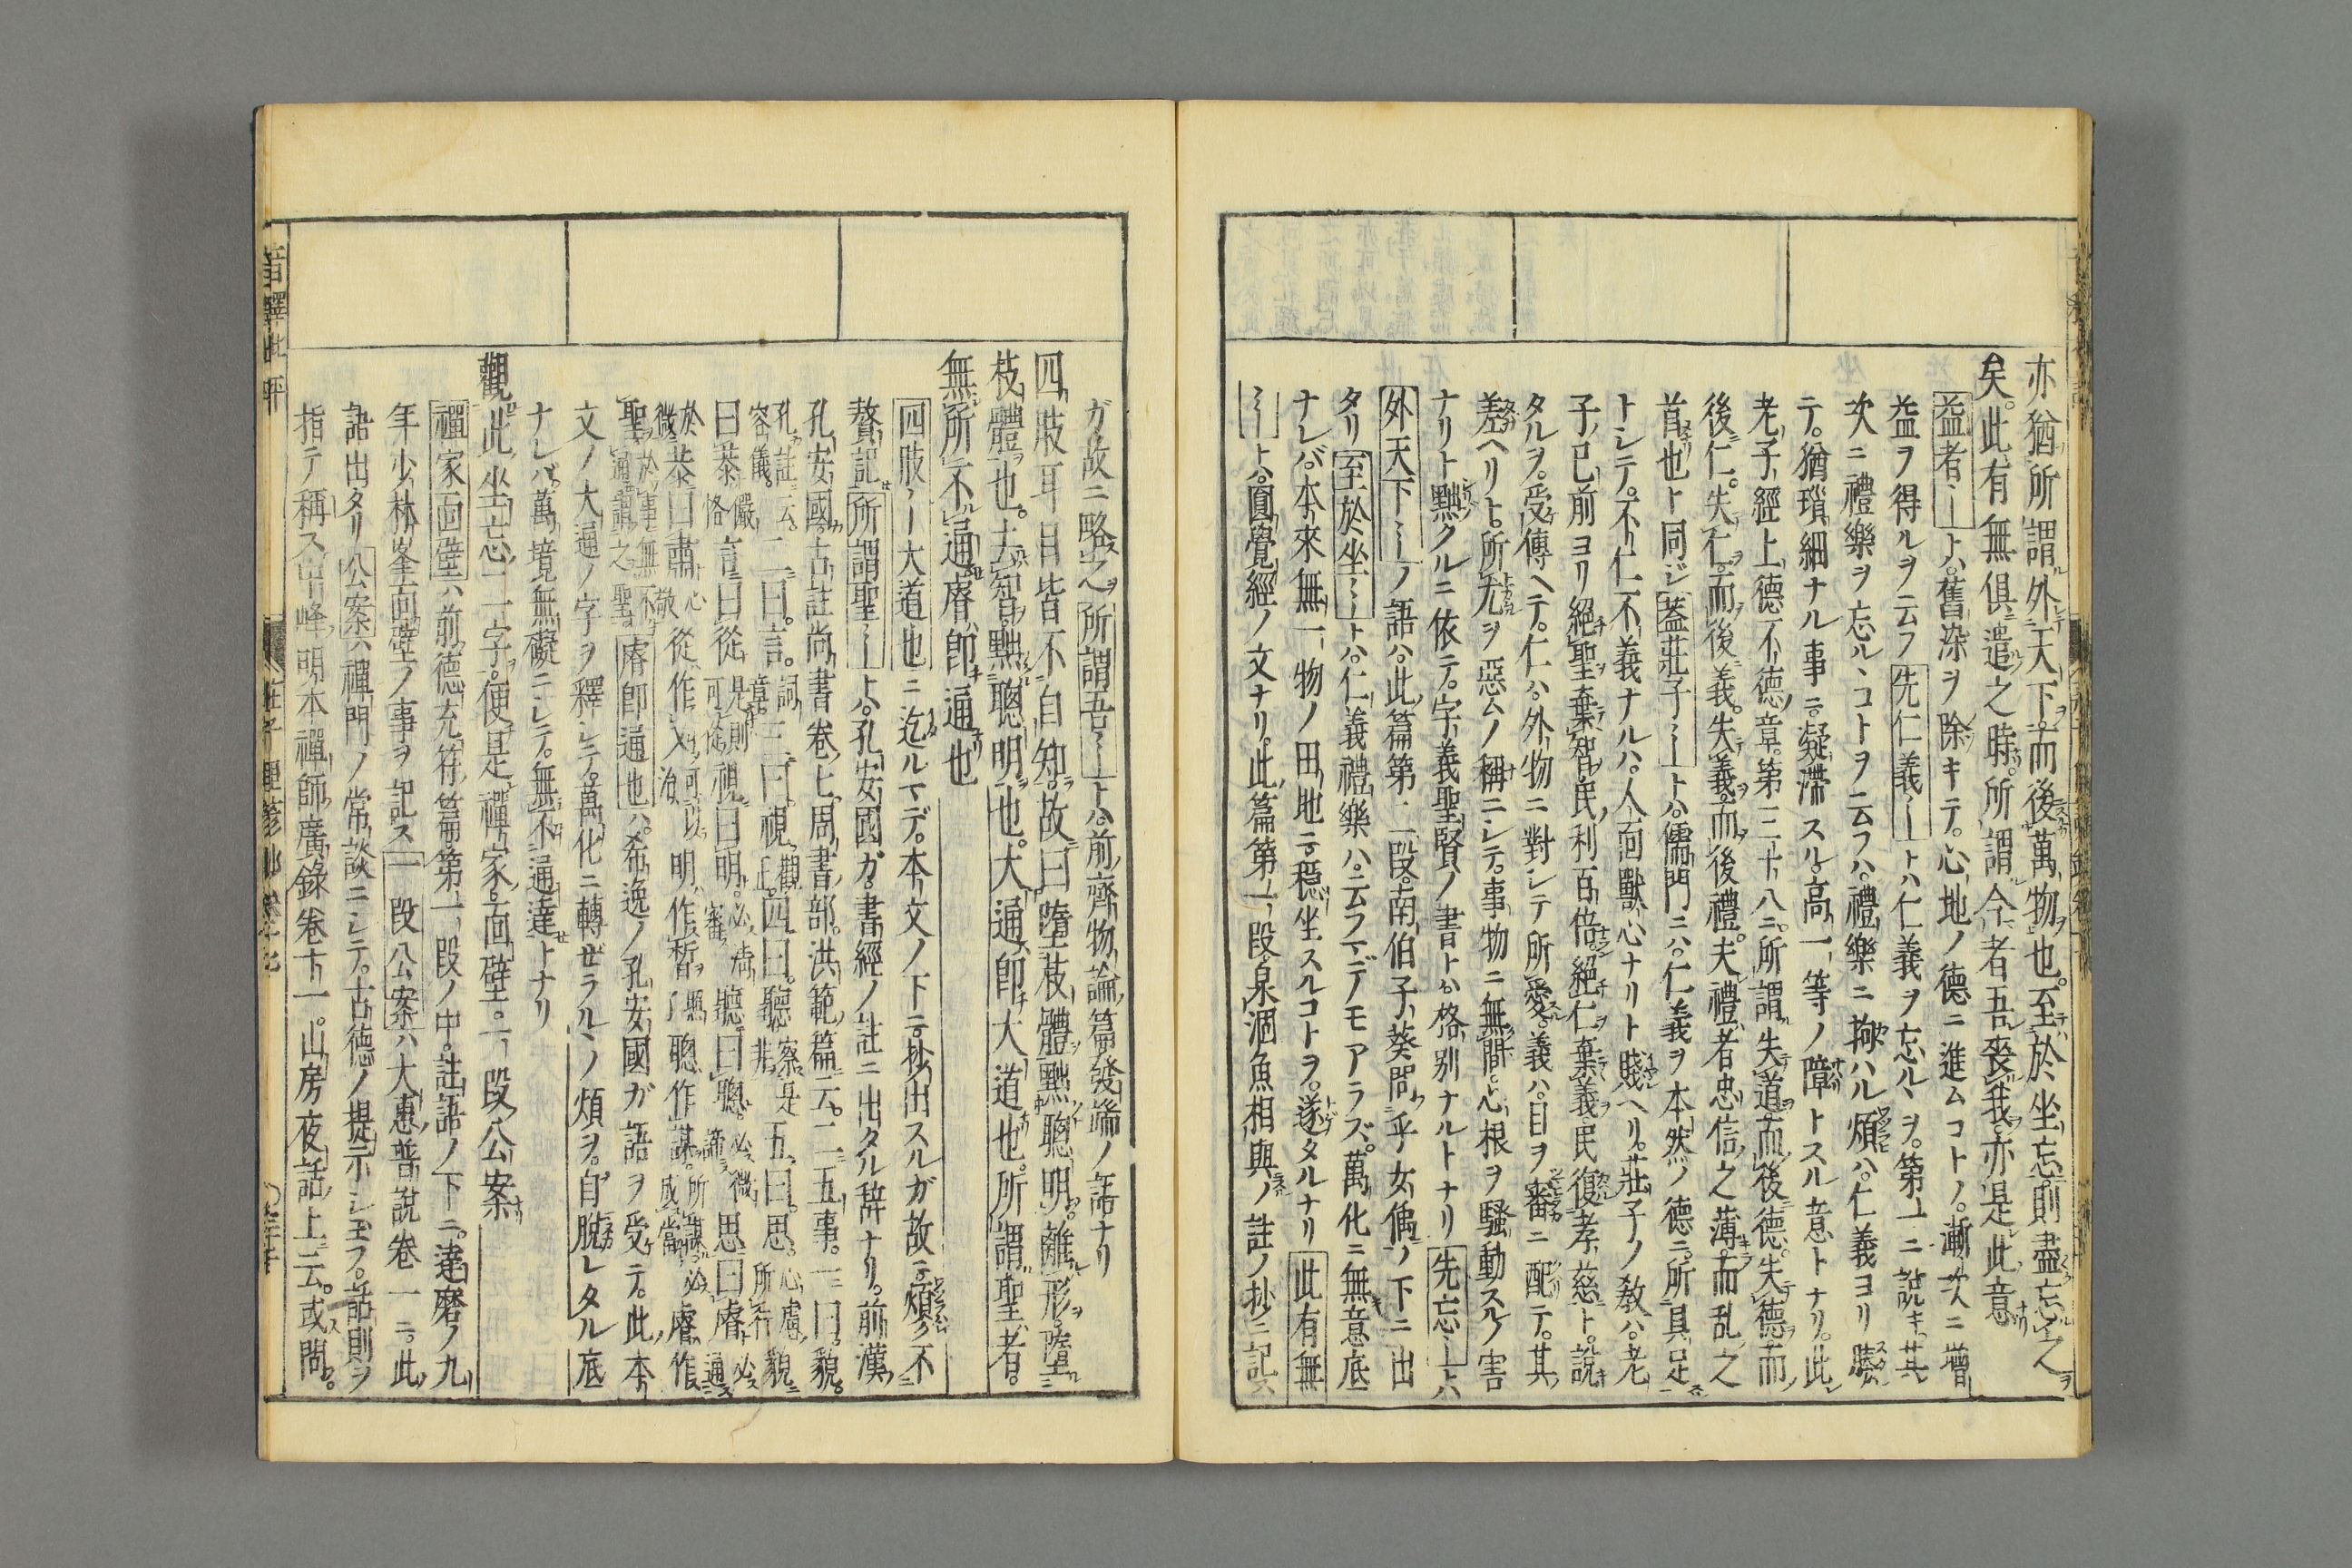 亦猶所謂外天下而後萬物也。至於坐忘則盡忘之
矣。此有無俱遣之時。所謂今者吾喪我。亦是此意
益者ーートハ。舊染ヲ除キテ。心地ノ德ニ進ムコトノ。漸次ニ增
益ヲ得ルヲ云フ 先仁義ーートハ仁義ヲ忘ルヽヲ。第一ニ説キ。其
次ニ禮樂ヲ忘ルヽコトヲ云フハ。禮樂ニ拘ハル煩ハ。仁義ヨリ
テ。猶瑣細ナル事ニ。凝滯スル。高一等ノ障トスル意トナリ。此
老子經上德不德章。第三十八ニ。所謂失道而後德。失德而
後仁。失仁而後義。失義而後禮。夫禮者忠信之薄。而乱之
首也ト同ジ 益莊子ーートハ。儒門ニハ。仁義ヲ本然ノ德ニ。所具足
トシテ。不仁不義ナルハ。人面獸心ナリト賤ヘリ。莊子ノ敎ハ。老
子ノ已前ヨリ絕聖棄智。民利百倍。絕仁棄義。民復孝慈ト。説
タルヲ。受傳ヘテ。仁ハ。外物ニ對シテ所愛。義ハ。目ヲ審ニ配テ。其
差ヘリト。所无ヲ惡ムノ稱ニシテ。事物ニ無間。心根ヲ騷動スル害
ナリト黜クルニ依テ。字義聖賢ノ書トハ格別ナルトナリ 先忘ーートハ
外天下ーーノ語ハ。此篇第二段。南伯子葵問乎女偊ソ下ニ出
タリ 至於坐ーートハ。仁義禮樂ハ。云フマデモアラズ。萬化ニ無意底
ナレバ。本來無一物ノ田地ニ穩坐スルコトヲ。遂タルナリ 此有無
ーートハ。圓覺經ノ文ナリ。此篇第一段泉涸魚相與ノ註ノ抄ニ記ス
ガ故ニ略之 所謂吾ーートハ。前齊物論篇發端ノ語ナリ
四肢耳目皆不自知。故曰墮枝體黜聰明。離形。墮
枝體也。去智。黜聰明也。大通卽大道也。所謂聖者。
無所不通。睿卽通也
四肢ーー大道也ニ迄ルマデ。本文ノ下ニ抄出スルガ故ニ煩ク不
贅記 所謂聖ーートハ。孔安國ガ。書經ノ註ニ出タル辞ナリ。前漢
孔安國古註尚書卷七周書部。洪範篇云。二五事。一曰。貌
孔註云容儀。二曰。言。詞章。三曰。視。觀正。四曰。聽。察是非。五曰。思。心慮所行 貌
曰恭。儼恪 言曰從。是則可從 視曰明。必清審 聽曰聰。必微諦 思曰睿。必通
於微 恭曰肅。心敬 從作乂。可以治 明作哲。照了 聰作謀。所謀必成當 睿作
聖。於事無不通謂之聖 睿卽通也ハ。希逸ノ孔安國ガ語ヲ受テ。此本
文ノ大通ノ字ヲ釋シテ。萬化ニ轉ゼラルヽノ煩ヲ。自脫レタル底
ナレバ。萬境無礙ニシテ。無不通達トナリ
觀此坐忘二字。便是禪家面壁。一段公案
禪家面壁ハ前德充符篇第一段ノ中。註語ノ下ニ。達磨ノ九
年少林峯面壁ノ事ヲ記ス 一段公案ハ大惠普説卷一ニ。此
語出タリ 公案ハ禪門ノ常談ニシテ。古德ノ提示シ玉フ。話則ヲ
指テ稱ス 中峰明本禪師廣錄卷十一。山房夜話上云。或問。
首釋批評